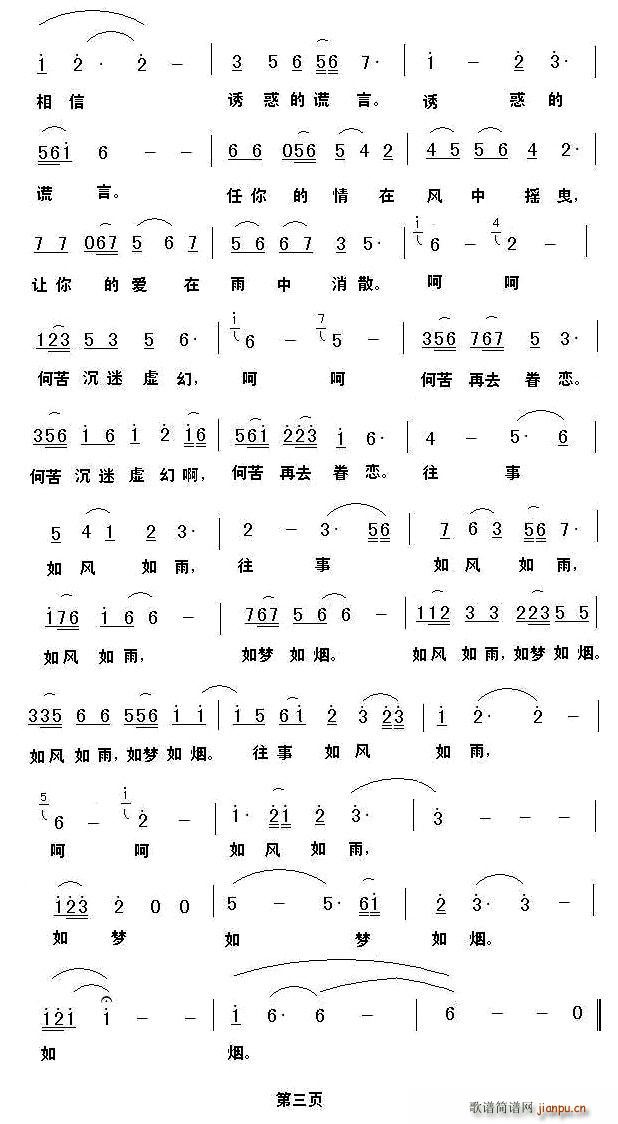 1 2· 2 - | 3 5 6 56 7· | 1 - 2 3·
相信 诱惑的谎言。诱 惑的
561 6 - - | 6 6 056 5 4 2 | 4 5 5 6 4 2·
谎 言。 任你 的 情 在 风 中 摇 曳，
7 7 067 5 6 7 | 5 6 6 7 3 5· | i 6 - 4 2 -
让你 的 爱 在 雨 中 消 散。 呵 呵
123 5 3 5 6· | i 6 - 7 5 - | 356 767 5 3·
何苦 沉 迷 虚 幻， 呵 呵 何苦 再去 眷 恋。
356 1 6 1 2 16 | 561 223 1 6· | 4 - 5· 6
何苦 沉 迷 虚 幻 啊， 何苦 再去 眷 恋。 往 事
5 4 1 2 3· | 2 - 3· 56 | 7 6 3 56 7·
如 风 如 雨， 往 事 如 风 如 雨，
176 1 6 6 - | 767 5 6 6 - | 112 3 3 223 5 5
如风 如 雨， 如梦 如 烟。 如风 如 雨，如梦 如 烟。
335 6 6 556 1 1 | 1 5 61 2 3 23 | 1 2· 2 -
如风 如 雨，如梦 如 烟。 往 事 如 风 如 雨，
5 6 - i 2 - | 1· 21 2 3· | 3 - - -
呵 呵 如 风 如 雨，
123 2 0 0 | 5 - 5· 61 | 2 3· 3 -
如 梦 如 梦 如 烟。
121 1 - - | 1 6· 6 - | 6 - - 0
如 烟。
第三页
歌谱简谱网
jianpu.cn